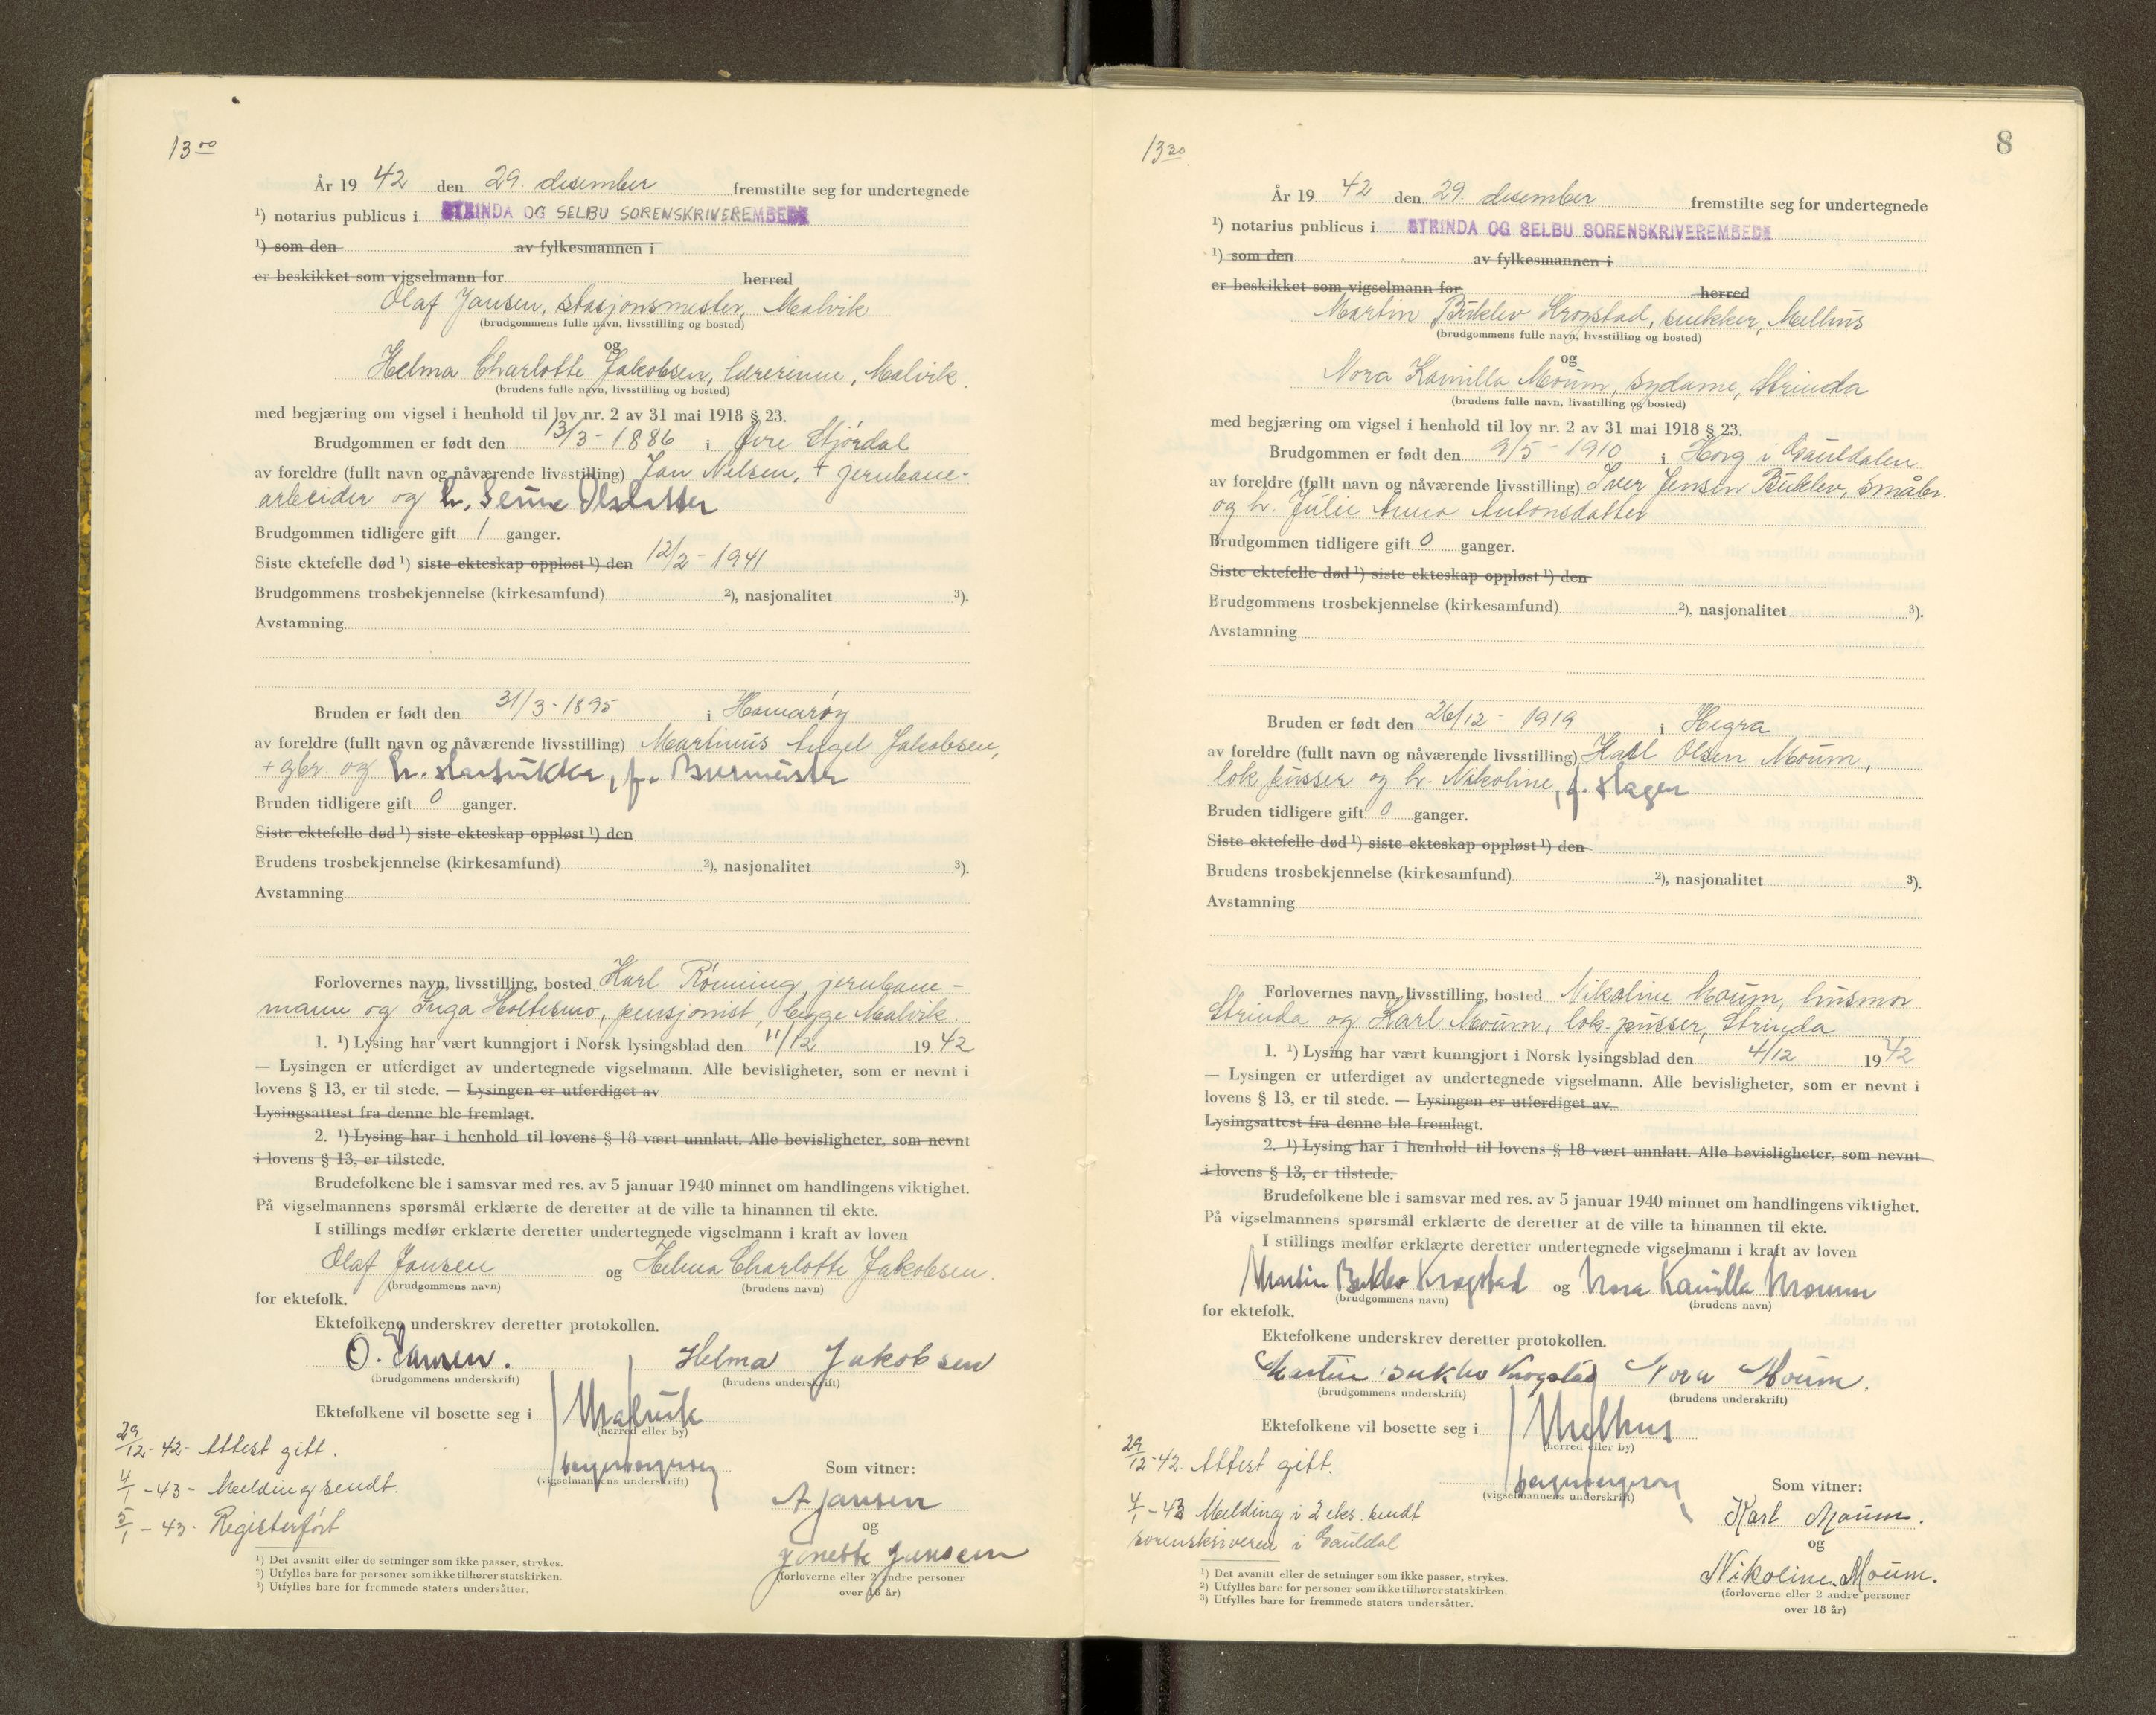 13 00
År 19 42 den 29. desember fremstilte seg for undertegnede
1) notarius publicus i STRINDA OG SELBU SORENSKRIVEREMBEDE
1) som den av fylkesmannen i
er beskikket som vigselmann for herred
Olaf Jansen, stasjonsmester, Malvik
(brudgommens fulle navn, livsstilling og bosted)
og
Helma Charlotte Jakobsen, lærerinne, Malvik.
(brudens fulle navn, livsstilling og bosted)
med begjæring om vigsel i henhold til lov nr. 2 av 31 mai 1918 § 23.
Brudgommen er født den 13/3 - 1886 i Øvre Stjørdal
av foreldre (fullt navn og nåværende livsstilling) Jan Nilsen, + jernbane-
arbeider og h. Olsdatter
Brudgommen tidligere gift 1 ganger.
Siste ektefelle død 1) siste ekteskap oppløst 1) den 12/2 - 1941
Brudgommens trosbekjennelse (kirkesamfund) 2), nasjonalitet 3).
Avstamning
Bruden er født den 31/3 - 1895 i Hamarøy
av foreldre (fullt navn og nåværende livsstilling) Martinus Angel Jakobsen,
+ gbr. og h. f. Burmeister
Bruden tidligere gift 0 ganger.
Siste ektefelle død 1) siste ekteskap oppløst 1) den
Brudens trosbekjennelse (kirkesamfund) 2), nasjonalitet 3).
Avstamning
Forlovernes navn, livsstilling, bosted Karl Rønning, jernbane-
mann og Inga Holtesmo, pensjonist, begge Malvik.
1. 1) Lysing har vært kunngjort i Norsk lysingsblad den 11/12 19 42
— Lysingen er utferdiget av undertegnede vigselmann. Alle bevisligheter, som er nevnt i
lovens § 13, er til stede. — Lysingen er utferdiget av
Lysingsattest fra denne ble fremlagt.
2. 1) Lysing har i henhold til lovens § 18 vært unnlatt. Alle bevisligheter, som nevnt
i lovens § 13, er tilstede.
Brudefolkene ble i samsvar med res. av 5 januar 1940 minnet om handlingens viktighet.
På vigselmannens spørsmål erklærte de deretter at de ville ta hinannen til ekte.
I stillings medfør erklærte deretter undertegnede vigselmann i kraft av loven
Olaf Jansen og Helma Charlotte Jakobsen.
(brudgommens navn) (brudens navn)
for ektefolk.
Ektefolkene underskrev deretter protokollen.
O. Jansen. Helma Jakobsen
(brudgommens underskrift) (brudens underskrift)
Ektefolkene vil bosette seg i Malvik
(herred eller by)
29/12 - 42 - Attest gitt.
(vigselmannens underskrift) Som vitner:
4/1 - 43 - Melding sendt.
A Jansen
5/1 - 43. Registerført
og
Jonette Jansen
(forloverne eller 2 andre personer
over 18 år)
1) Det avsnitt eller de setninger som ikke passer, strykes.
2) Utfylles bare for personer som ikke tilhører statskirken.
3) Utfylles bare for fremmede staters undersåtter.
8
13 30
År 19 42 den 29. desember fremstilte seg for undertegnede
1) notarius publicus i STRINDA OG SELBU SORENSKRIVEREMBEDE
1) som den av fylkesmannen i
er beskikket som vigselmann for herred
Martin Buklev Krogstad, snekker, Melhus
(brudgommens fulle navn, livsstilling og bosted)
og
Nora Kamilla Moum, sydame, Strinda
(brudens fulle navn, livsstilling og bosted)
med begjæring om vigsel i henhold til lov nr. 2 av 31 mai 1918 § 23.
Brudgommen er født den 9/5 - 1910 i Horg i Gauldalen
av foreldre (fullt navn og nåværende livsstilling) Iver Jensen Buklev, småbr.
og h. Julie Anna Antonsdatter
Brudgommen tidligere gift 0 ganger.
Siste ektefelle død 1) siste ekteskap oppløst 1) den
Brudgommens trosbekjennelse (kirkesamfund) 2), nasjonalitet 3).
Avstamning
Bruden er født den 26/12 - 1919 i Hegra
av foreldre (fullt navn og nåværende livsstilling) Karl Olsen Moum,
lok.pusser og h. Nikoline, f. Hagen
Bruden tidligere gift 0 ganger.
Siste ektefelle død 1) siste ekteskap oppløst 1) den
Brudens trosbekjennelse (kirkesamfund) 2), nasjonalitet 3).
Avstamning
Forlovernes navn, livsstilling, bosted Nikoline Moum, husmor
Strinda og Karl Moum, lok.pusser, Strinda
1. 1) Lysing har vært kunngjort i Norsk lysingsblad den 4/12 19 42
— Lysingen er utferdiget av undertegnede vigselmann. Alle bevisligheter, som er nevnt i
lovens § 13, er til stede. — Lysingen er utferdiget av
Lysingsattest fra denne ble fremlagt.
2. 1) Lysing har i henhold til lovens § 18 vært unnlatt. Alle bevisligheter, som nevnt
i lovens § 13, er tilstede.
Brudefolkene ble i samsvar med res. av 5 januar 1940 minnet om handlingens viktighet.
På vigselmannens spørsmål erklærte de deretter at de ville ta hinannen til ekte.
I stillings medfør erklærte deretter undertegnede vigselmann i kraft av loven
Martin Buklev Krogstad og Nora Kamilla Moum
(brudgommens navn) (brudens navn)
for ektefolk.
Ektefolkene underskrev deretter protokollen.
Martin Buklev Krogstad Nora Moum.
(brudgommens underskrift) (brudens underskrift)
Ektefolkene vil bosette seg i Melhus
(herred eller by)
29/12 - 42. Attest gitt.
(vigselmannens underskrift) Som vitner:
4/1 - 43 Melding i 2 eks. sendt
sorenskriveren i Gauldal
Karl Moum.
og
Nikoline Moum.
(forloverne eller 2 andre personer
over 18 år)
1) Det avsnitt eller de setninger som ikke passer, strykes.
2) Utfylles bare for personer som ikke tilhører statskirken.
3) Utfylles bare for fremmede staters undersåtter.